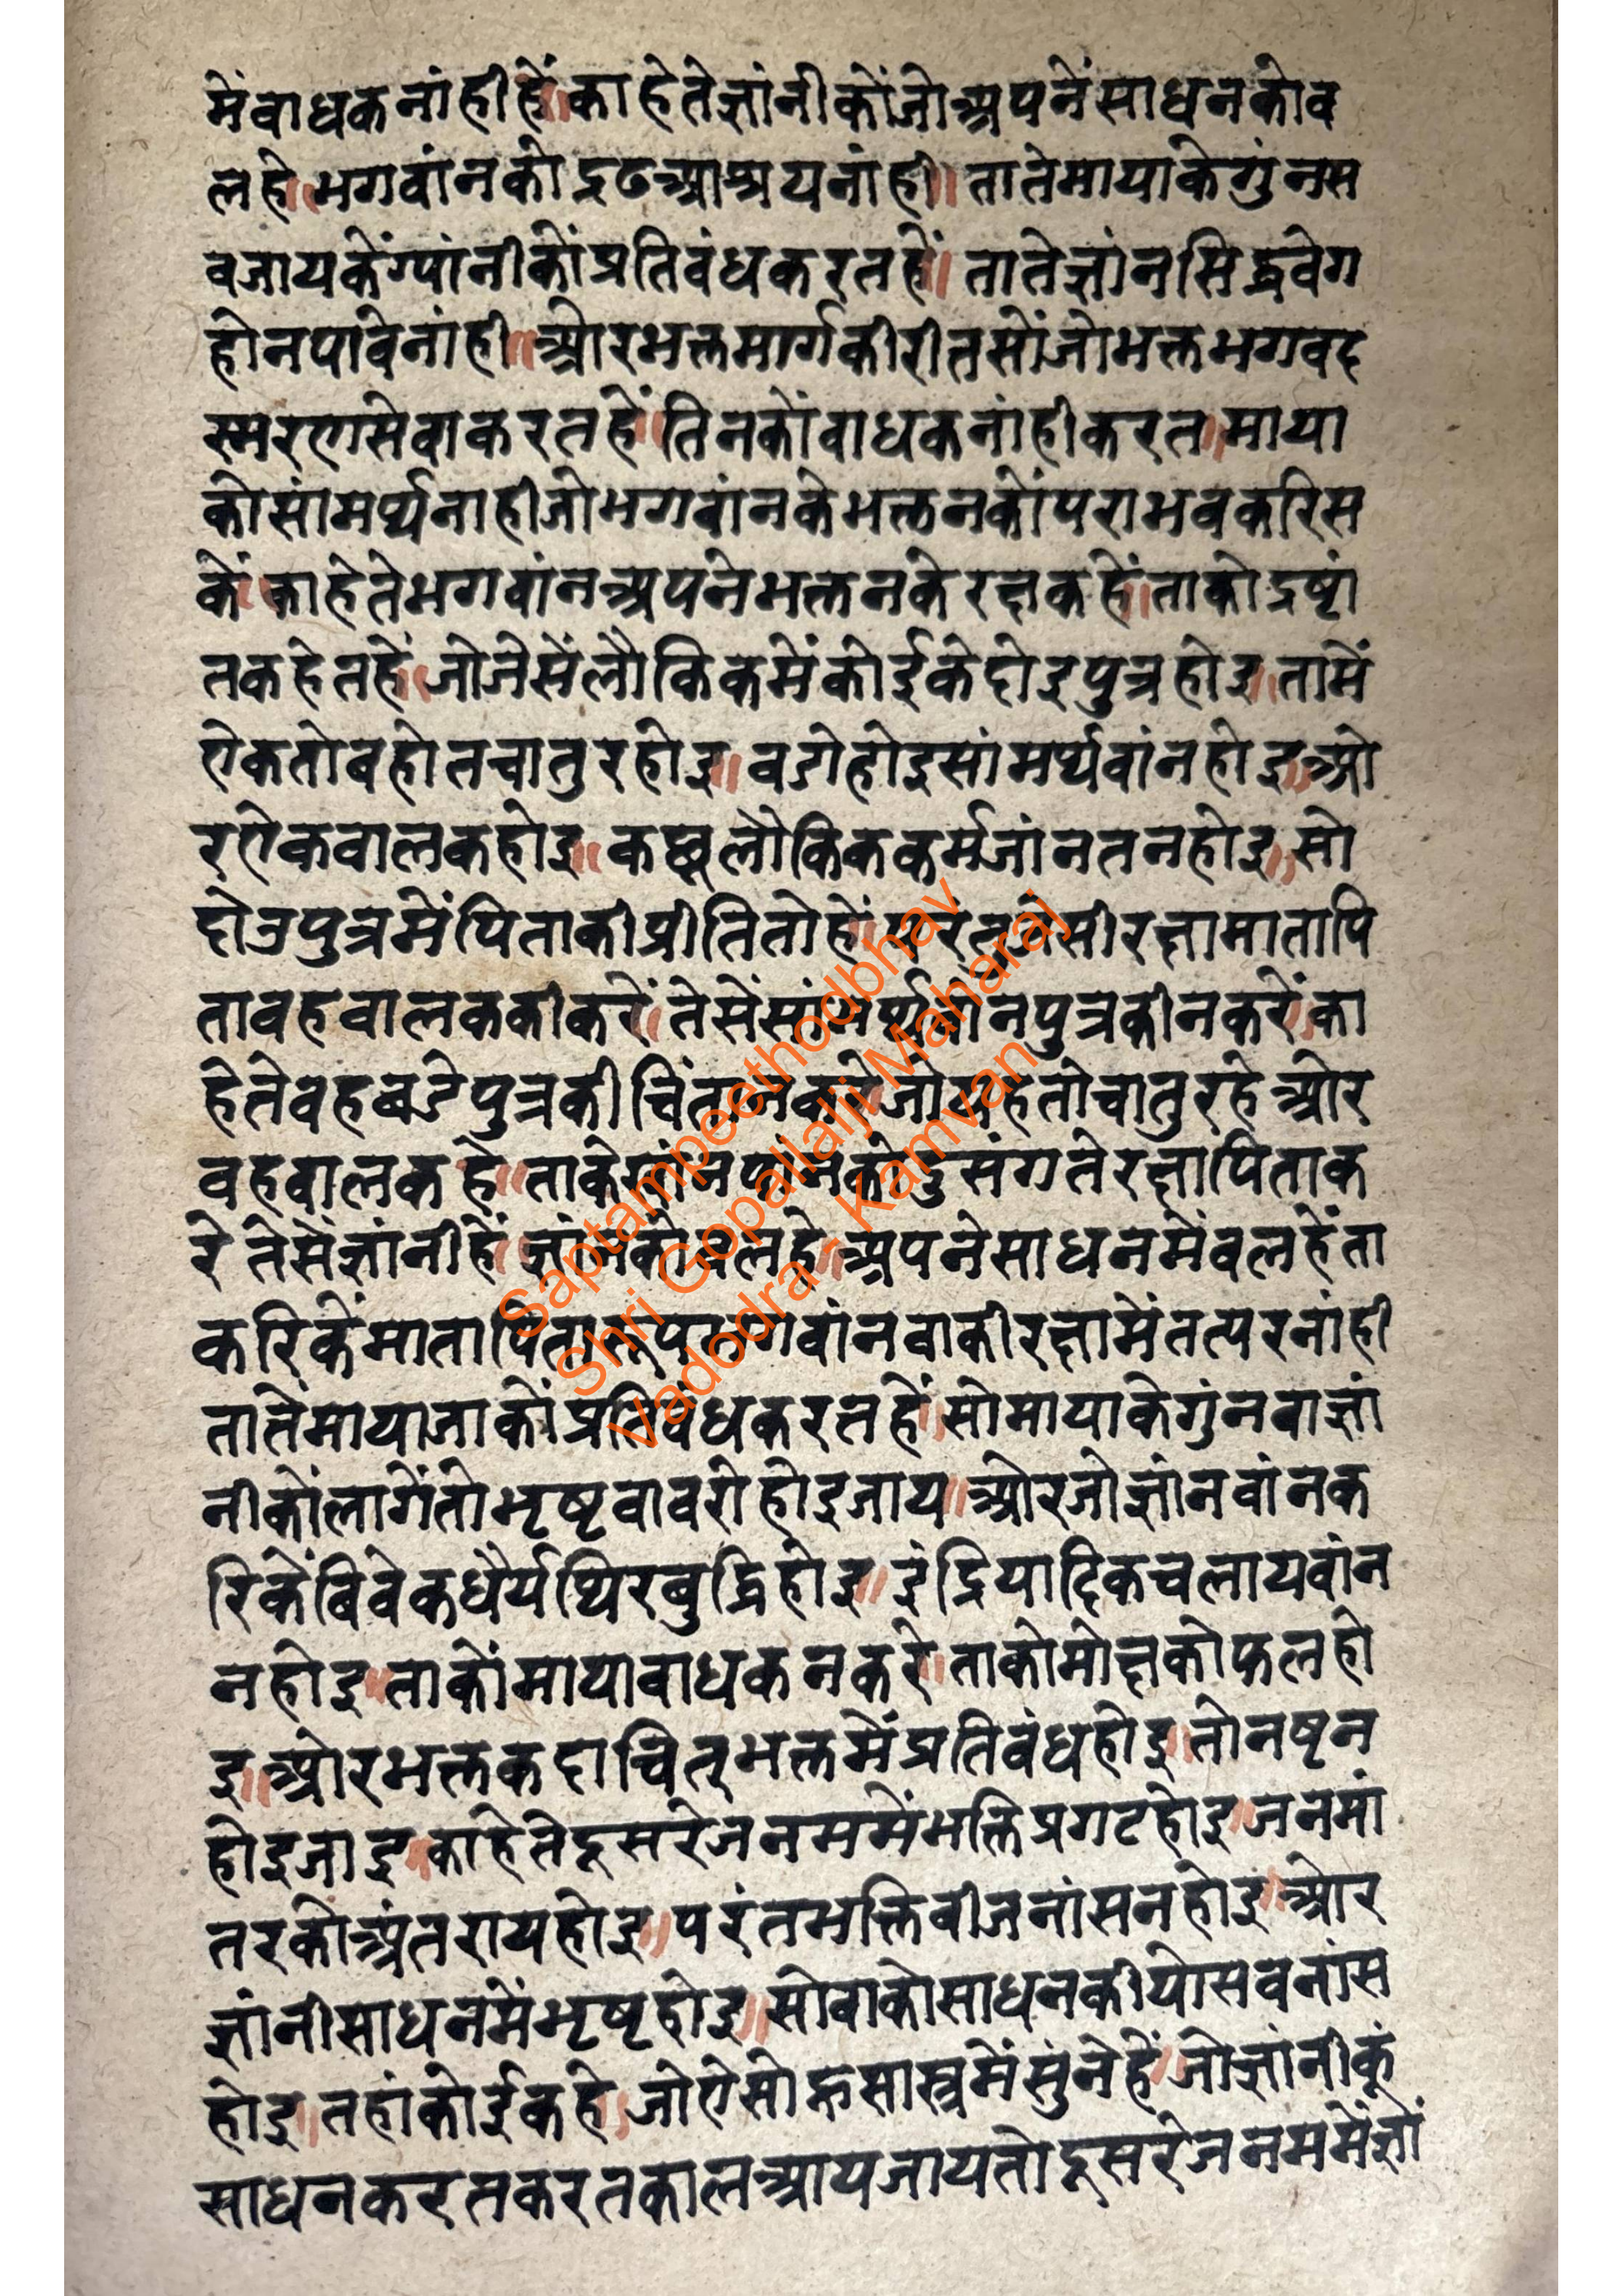 मेंबाधकनांहीहें॥काहेतेज्ञांनीकोंजोअपनेंसाधनकोव
लहे॥भगवांनकोद्रढआश्रयनांही॥तातेमायाकेगुंनस
वजायकेंग्यांनीकोंप्रतिवंधकरतहें॥तातेज्ञांनसिद्धवेग
होनपावेनांही॥ओरभक्तमार्गकीरीतसोंजोभक्तभगवद
स्मरणसेवाकरतहें॥तिनकोंवाधकनांहीकरत॥माया
कोसांमर्थ्यनाहीजोभगवांनकेभक्तनकोंपराभवकरिस
कें॥काहेतेभगवांनअपनेभक्तनकेरक्षकहें॥ताकोद्रष्टां
तकहेतहें॥जोजेसेंलौकिकमेंकोईकेदोइपुत्रहोइ॥तामें
ऐकतोबहोतचातुरहोइ॥वडोहोइसांमर्थ्यवांनहोइ॥ओ
रऐकवालकहोइ॥कछूलौकिककर्मजांनतनहोइ॥सो
दोउपुत्रमेंपिताकीप्रीतितोहें॥परंतुजेसीरक्षामातापि
तावहवालककीकरें॥तेसेंसांमर्थ्यवांनपुत्रकीनकरें॥का
हेतेवहबडेपुत्रकीचिंतानकरे॥जोयहतोचातुरहेओर
वहवालकहे॥ताकेखांनपांनकोदुसंगतेरक्षापिताक
रेतेसेंज्ञांनीहें॥ज्ञांनकोवलहे॥अपनेसाधनमेंवलहेंता
करिकेंमातापितारूपभगवांनवाकीरक्षामेंतत्परनांही
तातेंमायाजाकोंप्रतिबंधकरतहें॥सोमायाकेगुंनवाज्ञां
नीकोंलागेंतोभृष्टवावरोहोइजाय॥ओरजोज्ञांनवांनक
रिकेंबिवेकधैर्यथिरबुद्धिहोइ॥इंद्रियादिकचलायवांन
नहोइ॥ताकोंमायावाधकनकरे॥ताकोमोक्षकोफलहो
इ॥ओरभक्तकदाचितभक्तमेंप्रतिवंधहोइ॥तोनष्टन
होइजाइ॥काहेतेदूसरेजनममेंभक्तिप्रगटहोइ॥जनमां
तरकोअंतरायहोइ॥परंतभक्तिबीजनांसनहोइ॥ओर
ज्ञांनीसाधनमेंभृष्टहोइ॥सोवाकोसाधनकीयोसवनांस
होइ॥तहांकोईकहे॥जोऐसोहूसास्त्रमेंसुंनेहें॥जोज्ञांनीकूं
साधनकरतकरतकालआयजायतोदूसरेजनममेंज्ञां
Saptampeethodbhav
Shri Gopallalji Maharaj
Vadodra - Kamvan